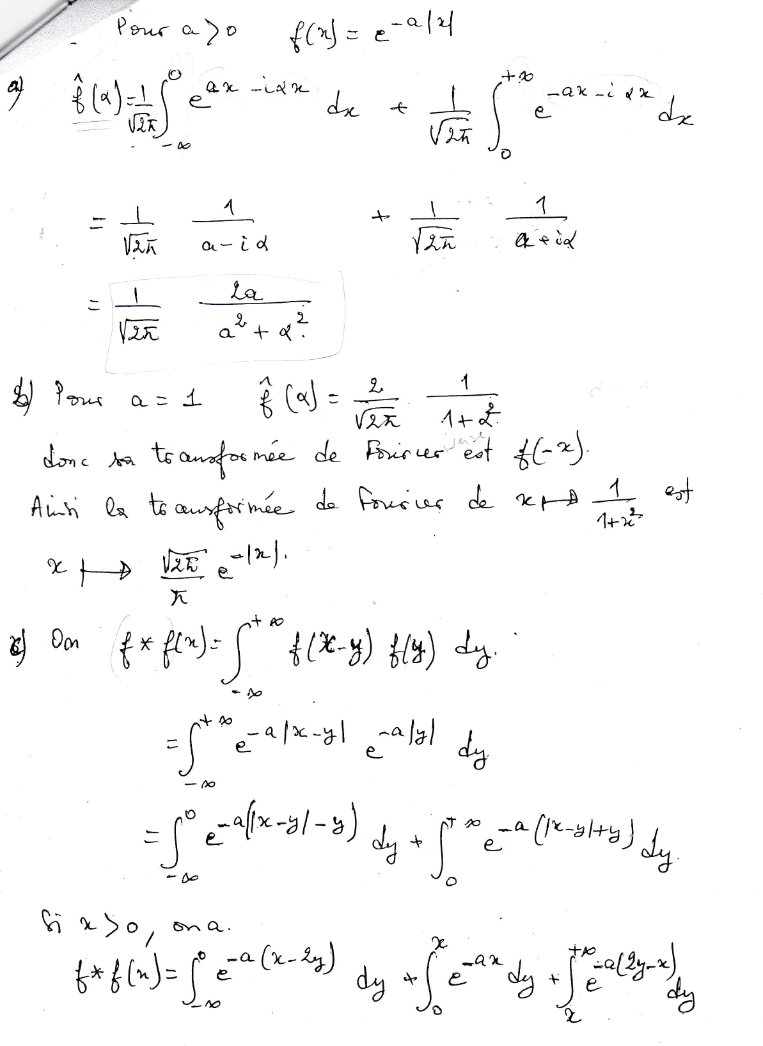 - Pour a>0 f(x) = e^{-a|x|}
a) f̂(α) = 1/√2π ∫_{-∞}^{0} e^{ax - iαx} dx + 1/√2π ∫_{0}^{+∞} e^{-ax - iαx} dx
= 1/√2π 1/(a-iα) + 1/√2π 1/(a+iα)
= 1/√2π 2a/(a²+α²).
b) Pour a = 1 f̂(α) = 2/√2π 1/(1+α²)
donc sa transformée de Fourier est f(-x).
Ainsi la transformée de Fourier de x ↦ 1/(1+x²) est
x ↦ √2π/π e^{-|x|}.
c) On f * f(x) = ∫_{-∞}^{+∞} f(x-y) f(y) dy.
= ∫_{-∞}^{+∞} e^{-a|x-y|} e^{-a|y|} dy
= ∫_{-∞}^{0} e^{-a(|x-y|-y)} dy + ∫_{0}^{+∞} e^{-a(|x-y|+y)} dy.
Si x>0, on a.
f*f(x) = ∫_{-∞}^{0} e^{-a(x-2y)} dy + ∫_{0}^{x} e^{-ax} dy + ∫_{x}^{+∞} e^{-a(2y-x)} dy